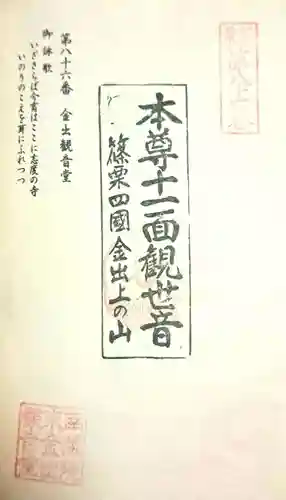 第八十六番　金出観音堂
御詠歌
いざさらば今宵はここに志度の寺
いのりのこえを耳にふれつつ
本尊十一面観世音
篠栗四國金出上の山